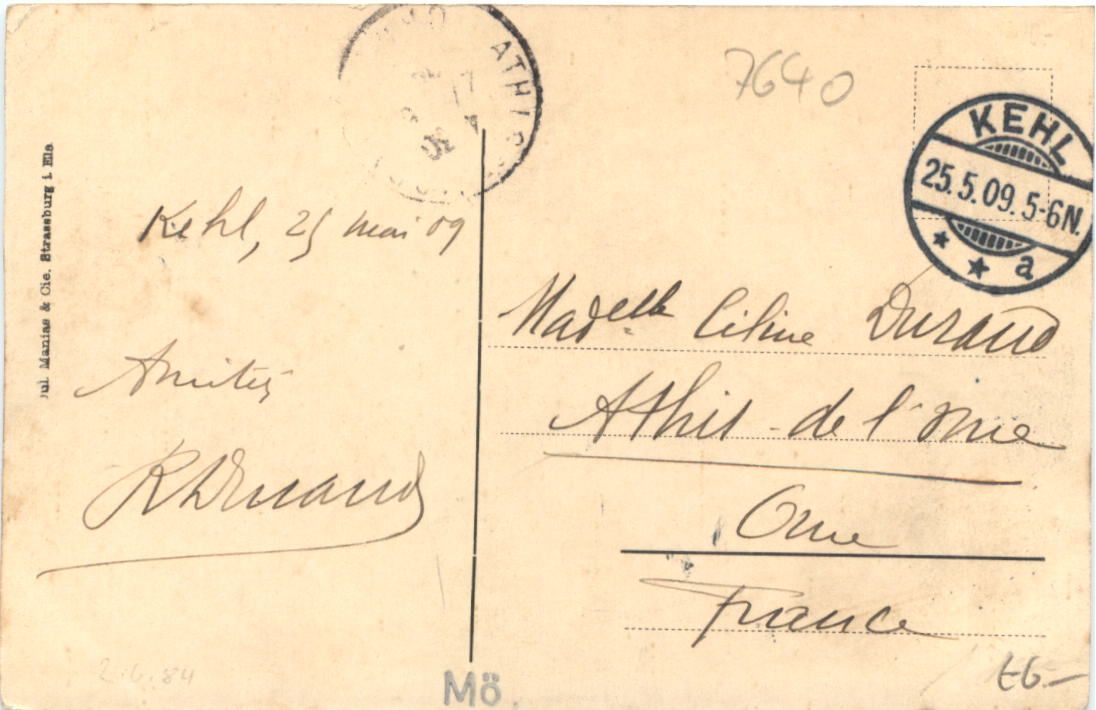 7640
ATHIS
KEHL
25.5.09.5-6N.
a
Jul. Manias & Cie. Strassburg i. Els
Kehl, 25 mai 09
Amitiés
RDurand
Madelle Céline Durand
Athis-de l'Orne
Orne
France
2.6.84
Mö.